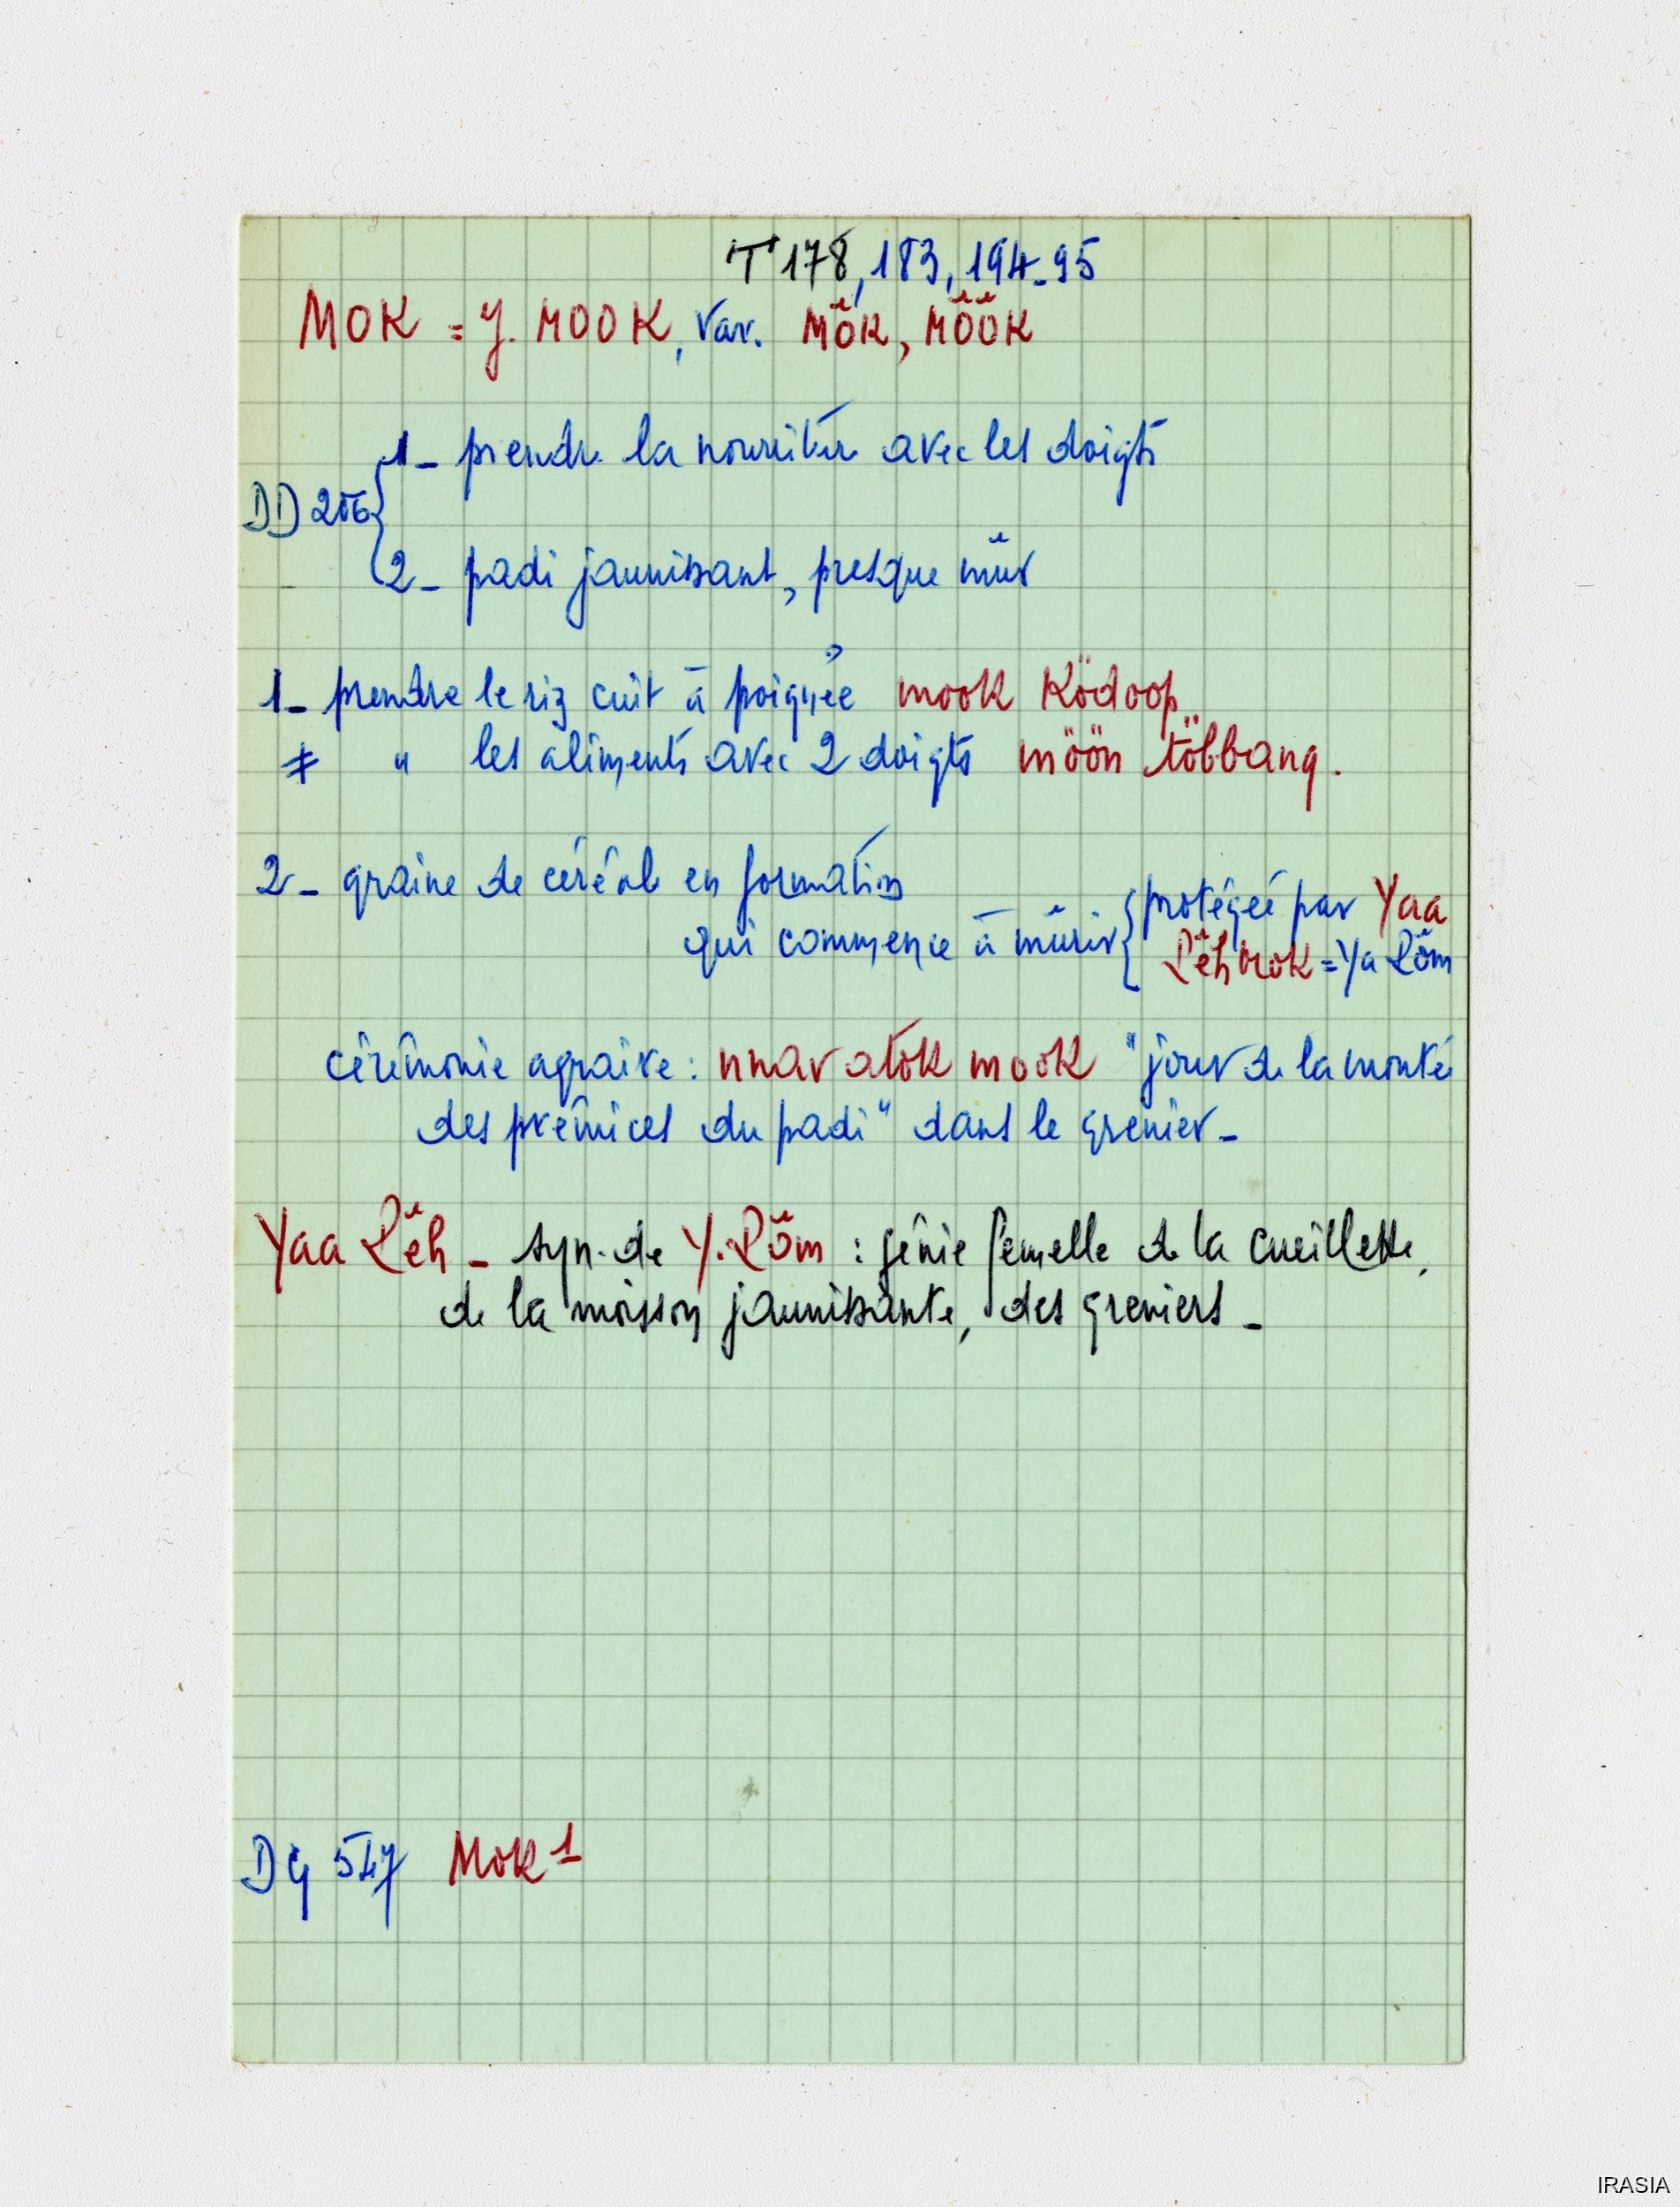 T 178, 183, 194-95
MOK = Y. MOOK, var. MÖ̆K, MÖ̆Ö̆K
1- prendre la nourriture avec les doigts
DD 206
2- padi jaunissant, presque mûr
1- prendre le riz cuit à poignée mook Ködoop
≠ " les aliments avec 2 doigts möön többang.
2- graine de céréale en formation
qui commence à mûrir { protégée par Yaa
Rĕh mok = Ya Röm
cérémonie agraire : nnar atŏk mook "jour de la montée
des prémices du padi" dans le grenier -
Yaa Rĕh - syn. de Y. Röm : génie femelle de la cueillette,
de la moisson jaunissante, des greniers -
DG 547 MOK 1
IRASIA